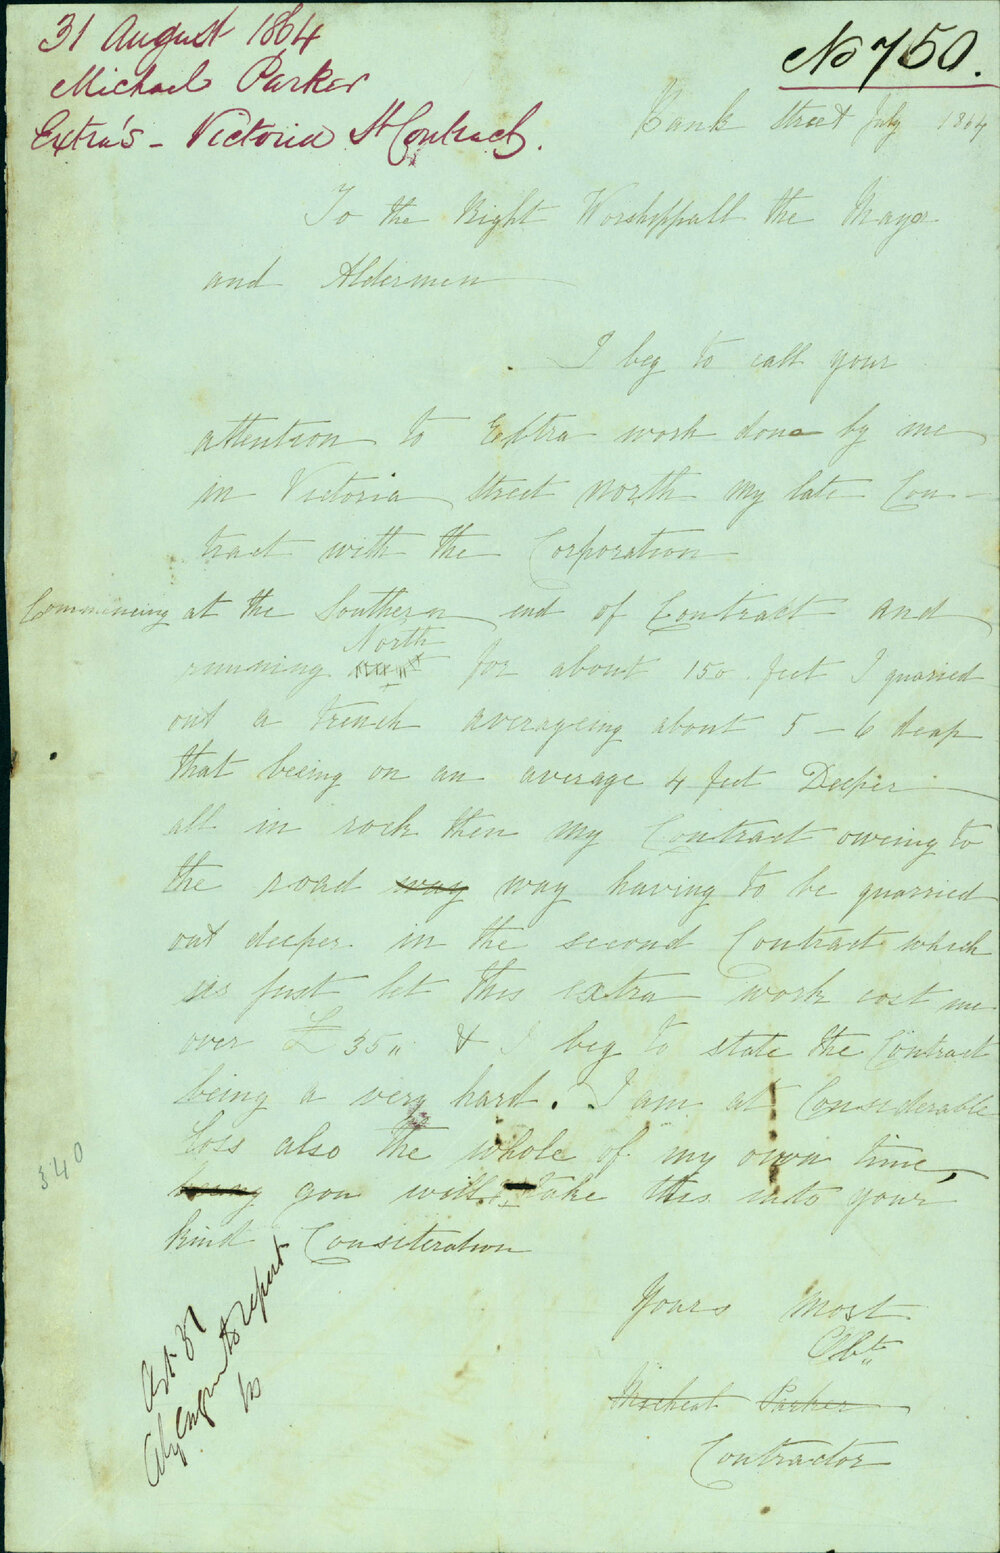 31 August 1864
Michael Parker
Extra's - Victoria St Contract.
No 750.
Bank Street July 1864
To the Right Worshyppall the Mayor
and Aldermen
I beg to call your
attention to Extra work done by me
in Victoria street North my late Con-
tract with the Corporation
Commencing at the Southern end of Contract and
North
running for about 150 feet I quaried
out a trench averageing about 5 - 6 deap
that beeing on an average 4 feet Deeper
all in rock then my Contract owing to
the road way way having to be quarried
out deeper in the second Contract which
is just let this extra work cost me
over £35,, & I beg to state the Contract
being a very hard. I am at Considerable
Loss also the whole of my own time,
you will take this into your
kind Consiteration
Yours most
Obt,,
Micheal Parker
Contractor
340
31
City Engineer to report